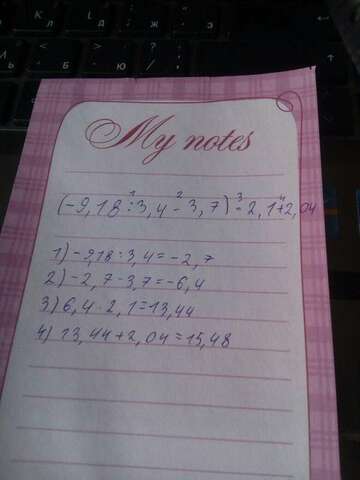 My notes
1 2 3 4
(-9,18:3,4-3,7)·2,1+2,04
1) -9,18:3,4=-2,7
2) -2,7-3,7=-6,4
3) 6,4·2,1=13,44
4) 13,44+2,04=15,48